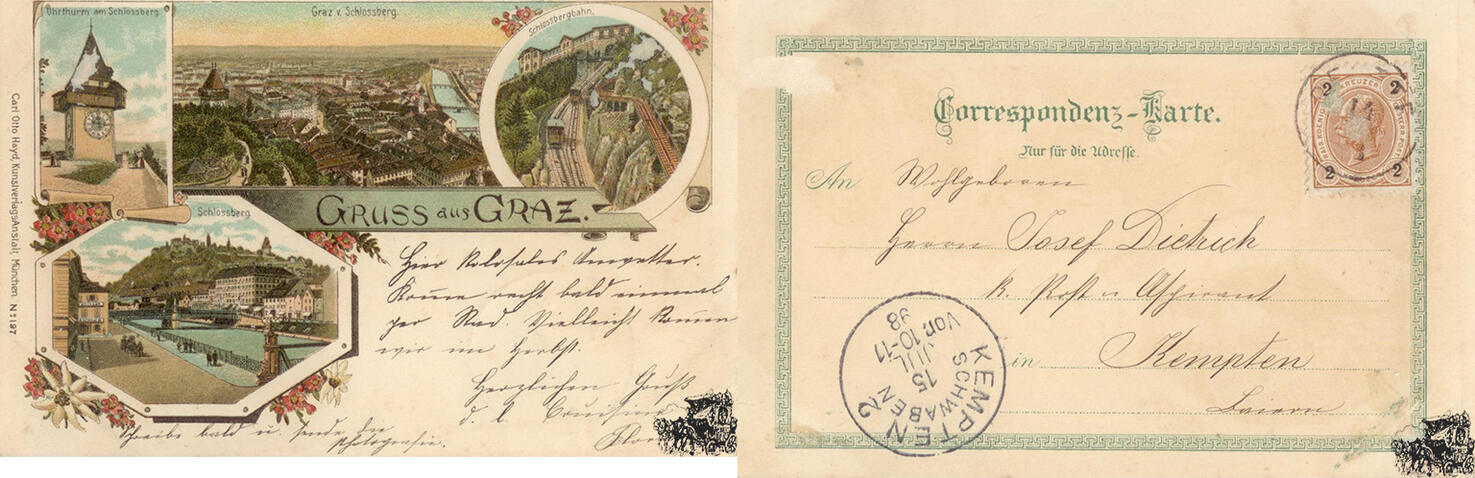 Uhrthurm am Schlossberg
Graz v. Schlossberg.
Schlossbergbahn.
Carl Otto Hayd, Kunstverlags-Anstalt, München. No 197
GRUSS aus GRAZ.
Schlossberg
Hier kolosales Unwetter.
Komme recht bald einmal
per Rad. Vielleicht kommen
wir im Herbst.
Herzlichen Gruß
d. l.
Schreibe bald u. sende die
Photografie.
Correspondenz-Karte.
Nur für die Adresse.
An Wohlgeboren
Herrn Josef Dietrich
k. Post u Aspirant
in Kempten
Baiern
2 KREUZER 2
2 2
KEMPTEN 2
SCHWABEN
15
JUL
VOR.10-11
98